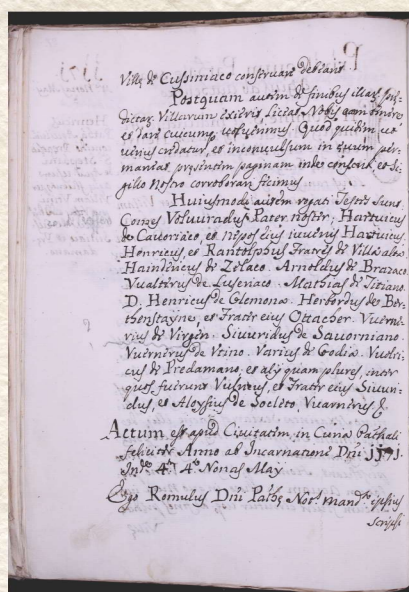 Villę de Cussiniaco construare debeant
Postquam autem de finibus illarum prę-
dictar. Villarum exieris Liceat Nobis eam tenere,
et dare cuicumq. voluerimus. Quod quidem ut
verius credatur, et inconvulsum in ęvum per-
maneat presentem paginam inde conscribi, et Si-
gillo Nostro corroborari fecimus.
Huiusmodi autem rogati Testes Sunt.
Comes Volvuradus Pater noster; Hartvicus
de Cavoriaco, et Nepos eius iuvenis Hartvicus,
Henricus, et Rantolphus Fratres de Villa alta.
Haindricus de Zelaco. Arnoldus de Brazaco
Vualterus de Luseriaco. Mathias de Titiano.
D. Henricus de Glemona. Herbordus de Ber-
thenstayne, et Frater eius Ottacher. Vuerne-
rius de Virgen. Sivuridus de Savorniano.
Vuernerus de Vtino. Varius de Godia. Vuolri-
cus de Predamano, et alij quam plures, inter
quos fuerunt Vulvinus, et Frater eius Sivuri-
dus, et Aloysius de Socleto, Vuarnerus &.
Actum est apud Civitatem, in Curia Pathali
feliciter Anno ab Incarnatione Dni 1171.
Ind.e 4.a 4.o Nonas May
Ego Romulus Dni Pathę Not.s mand.to ipsius
scripsi